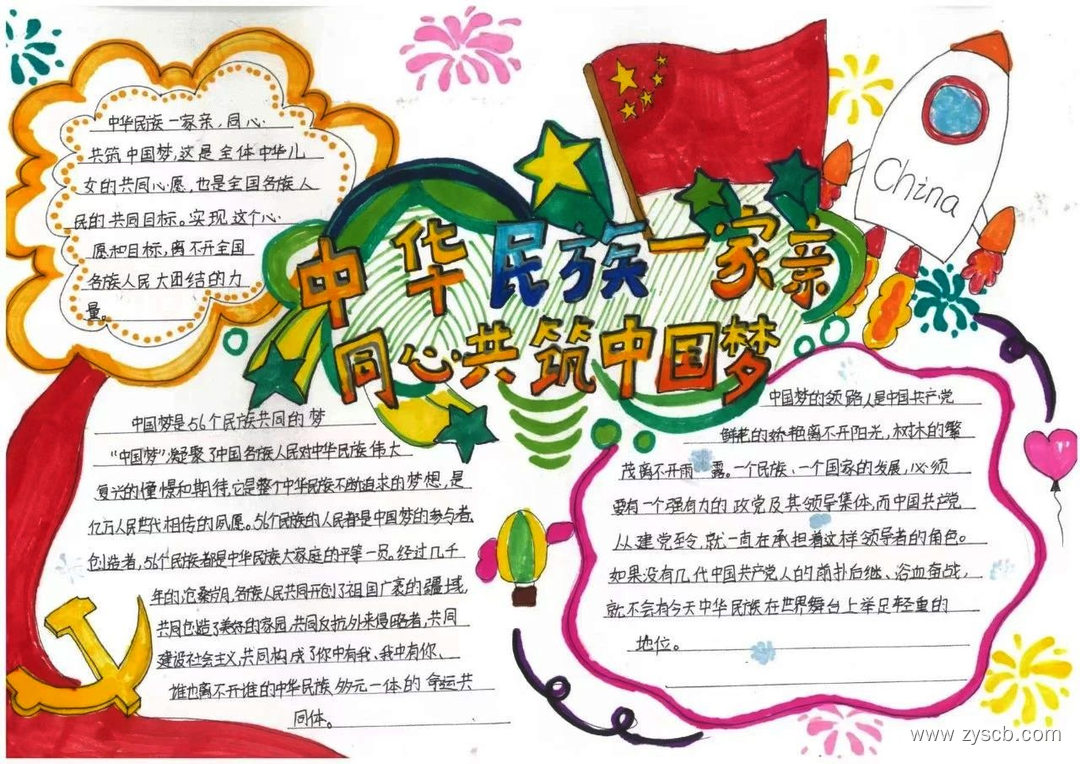 中华民族一家亲
同心共筑中国梦
China
中华民族一家亲，同心
共筑中国梦，这是全体中华儿
女的共同心愿，也是全国各族人
民的共同目标。实现这个心
愿和目标，离不开全国
各族人民大团结的力
量。
中国梦是56个民族共同的梦
“中国梦”凝聚了中国各族人民对中华民族伟大
复兴的憧憬和期待，它是整个中华民族不断追求的梦想，是
亿万人民世代相传的夙愿。56个民族的人民都是中国梦的参与者、
创造者，56个民族都是中华民族大家庭的平等一员。经过几千
年的沧桑岁月，各族人民共同开创了祖国广袤的疆域，
共同创造了美好的家园，共同反抗外来侵略者，共同
建设社会主义，共同构成了你中有我、我中有你、
谁也离不开谁的中华民族多元一体的命运共
同体。
中国梦的领路人是中国共产党
鲜花的娇艳离不开阳光，树木的繁
茂离不开雨露。一个民族、一个国家的发展，必须
要有一个强有力的政党及其领导集体，而中国共产党
从建党至今，就一直在承担着这样领导者的角色。
如果没有几代中国共产党人的前扑后继、浴血奋战，
就不会有今天中华民族在世界舞台上举足轻重的
地位。
www.zyscb.com